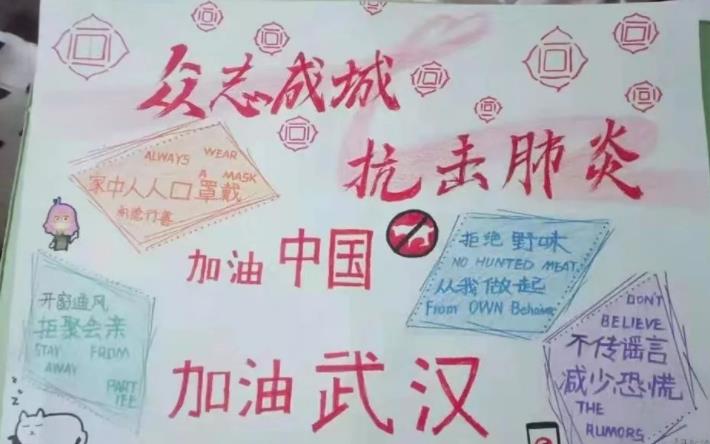 众志成城
抗击肺炎
ALWAYS WEAR
A MASK
家中人人口罩戴
加油中国
拒绝野味
NO HUNTED MEAT
从我做起
From OWN Behavior
开窗通风
拒聚会亲
STAY FROM
AWAY
PART
IEE
加油武汉
DON'T
BELIEVE
不传谣言
减少恐慌
THE
RUMORS